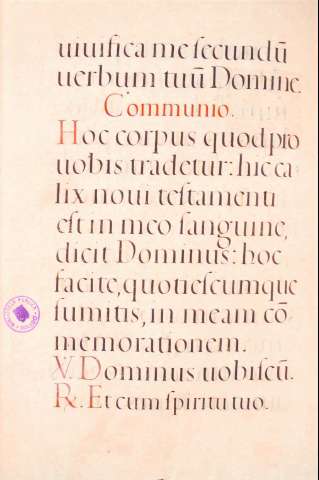 uiuifica me ſecundū
uerbum tuū Domine.
Communio.
Hoc corpus quod pro
uobis tradetur: hic ca-
lix noui teſtamenti
eſt in meo ſanguine,
dicit Dominus: hoc
facite, quotieſcumque
ſumitis, in meam cō
memorationem.
℣. Dominus uobiſcū.
℟. Et cum ſpiritu tuo.